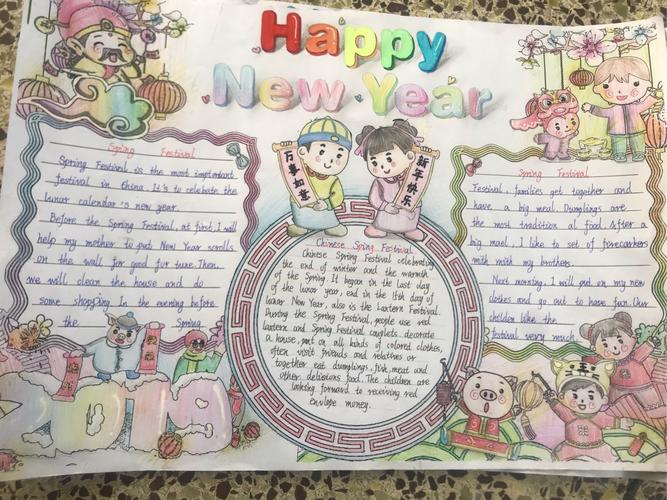 Happy
New Year
Spring Festival
Spring Festival is the most important
festival in China. It's to celebrate the
lunar calendar's new year.
Before the Spring Festival, at first I will
help my mother to put New Year scrolls
on the wall for good fur tune. Then
we will clean the house and do
some shopping. In the evening before
the Spring
万事如意
新年快乐
Chinese Spring Festival
Chinese Spring Festival celebrating
the end of winter and the warmth
of the Spring. It began in the last day
of the lunar year, end in the 15th day of
lunar New Year, also is the Lantern Festival.
During the Spring Festival, people use red
lantern and Spring Festival couplets decorate
a house, put on all kinds of colored clothes,
often visit friends and relatives or
together eat dumplings, fish, meat and
other delicious food. The children are
looking forward to receiving red
envelope money.
Spring Festival
Festival, families get together and
have a big meal. Dumplings are
the most tradition al food. After a
big mael, I like to set of firecarkers
with my brothers.
Next morning, I will put on my new
clothes and go out to have fun. Our
children like the
festival very much.
2019